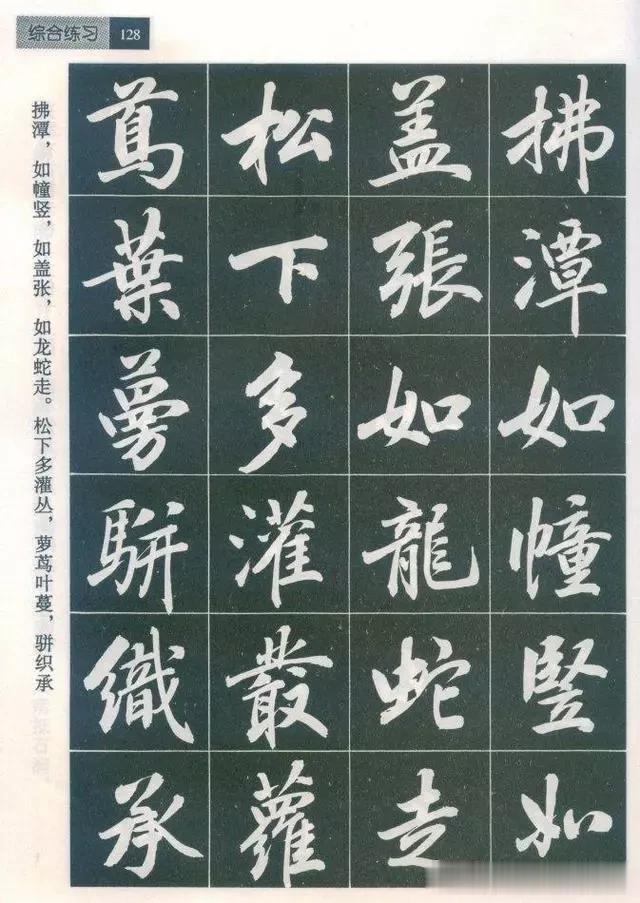 综合练习 128
拂潭如幢竖如
盖張如龍蛇走
松下多灌叢蘿
蔦葉蔓駢織承
拂潭，如幢竖，如盖张，如龙蛇走。松下多灌丛，萝茑叶蔓，骈织承